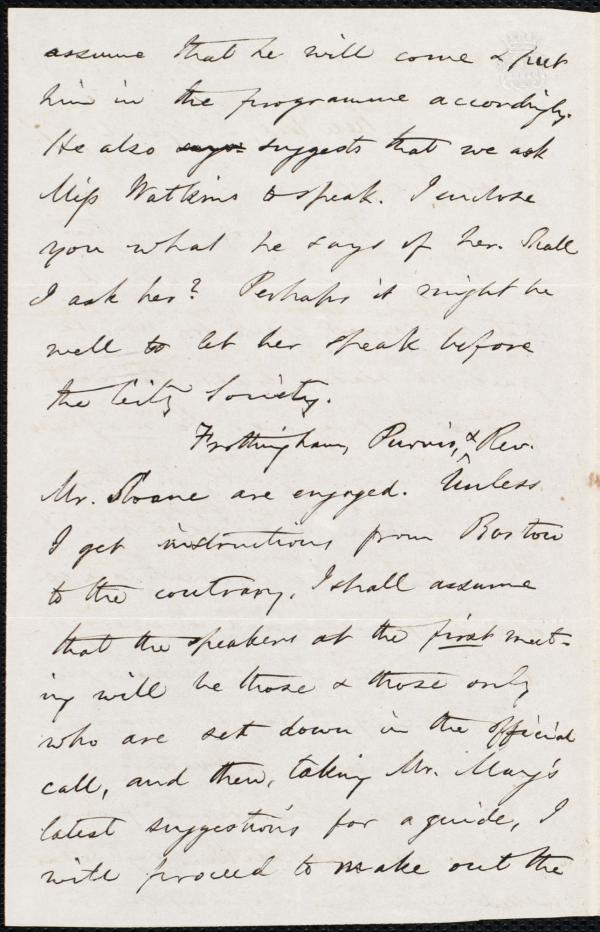 assume that he will come & put
him in the programme accordingly.
He also says suggests that we ask
Miss Watkins to speak. I enclose
you what he says of her. Shall
I ask her? Perhaps it might be
well to let her speak before
the City Society.
Frothingham, Purvis, & Rev.
Mr. Sloane are engaged. Unless
I get instructions from Boston
to the contrary, I shall assume
that the speakers at the first meet-
ing will be those & those only
who are set down in the official
call, and then, taking Mr. May's
latest suggestions for a guide, I
will proceed to make out the